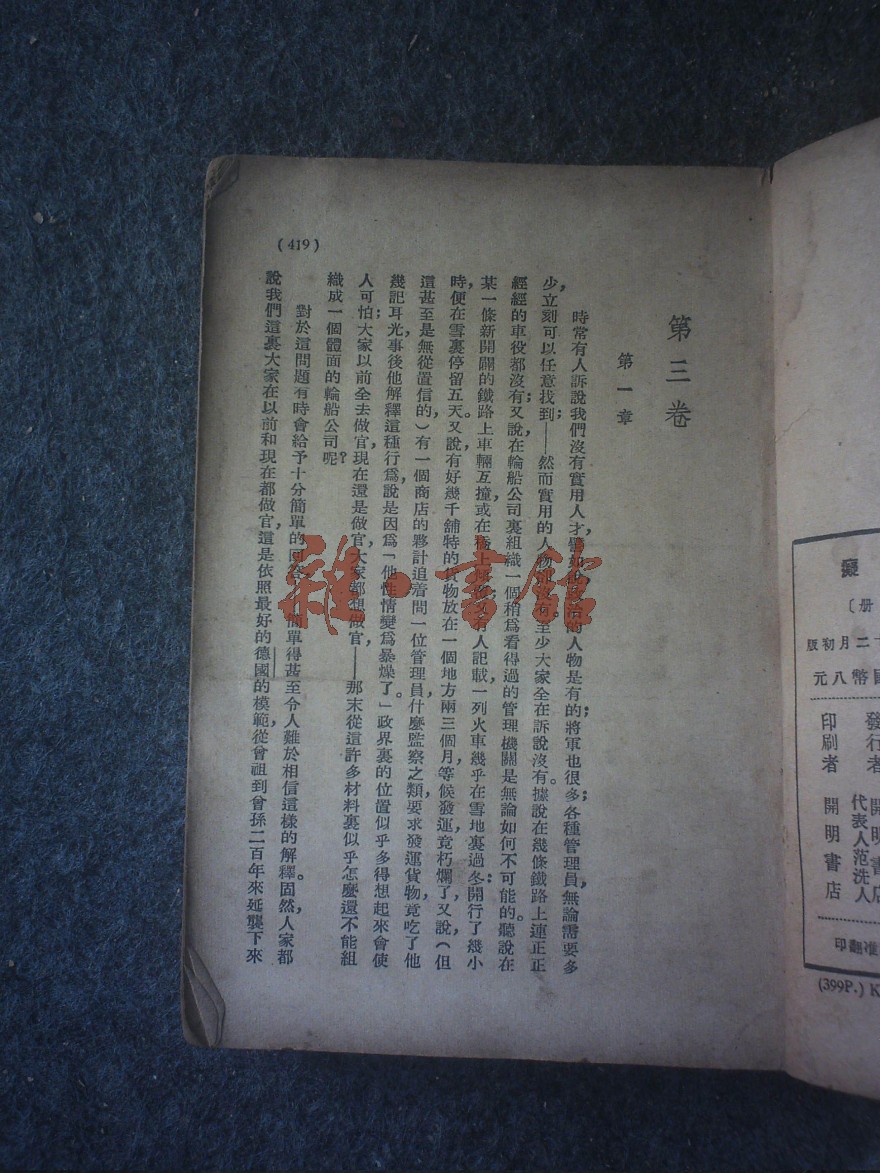 第三卷
第一章
時常有人訴說我們沒有實用人才,譬如說,政治的人物是有的;將軍也很多;各種管理員,無論需要多
少,立刻可以任意找到;——然而實用的人物卻沒有。至少大家全在訴說沒有。據說在幾條鐵路上連正正
經經的車役都沒有;又說在輪船公司裏組織一個稍爲看得過的管理機關是無論如何不可能的。聽說在
某一條新開闢的鐵路上車輛互撞,或在橋上傾倒;又有人記載一列火車幾乎在雪地裏過冬:開行了幾小
時,便在雪裏停留五天。又說,有好幾千舖特的貨物放在一個地方兩三個月,等候發運,竟朽爛了,又說,(但
這甚至是無從置信的,)有一個商店的夥計追着問一位管理員,什麼監察之類,要求發運貨物,竟吃了他
幾記耳光;事後他解釋這種行爲,說是因爲「他性情變爲暴燥了。」政界裏的位置似乎多得想起來會使
人可怕;大家以前全去做官,現在還是做官,大家都想做官,——那末從這許多材料裏似乎怎麼還不能組
織成一個體面的輪船公司呢?
對於這問題有時會給予十分簡單的回答,——簡單得甚至令人難於相信這樣的解釋。固然,人家都
說我們這裏大家在以前和現在都做官,這是依照最好的德國的模範,從曾祖到曾孫二百年來延襲下來
(419)
雜·書館
冊〕
二月初版
國幣八元
發行者 開明書店
代表人范洗人
印刷者 開明書店
准翻印
(399P.) K